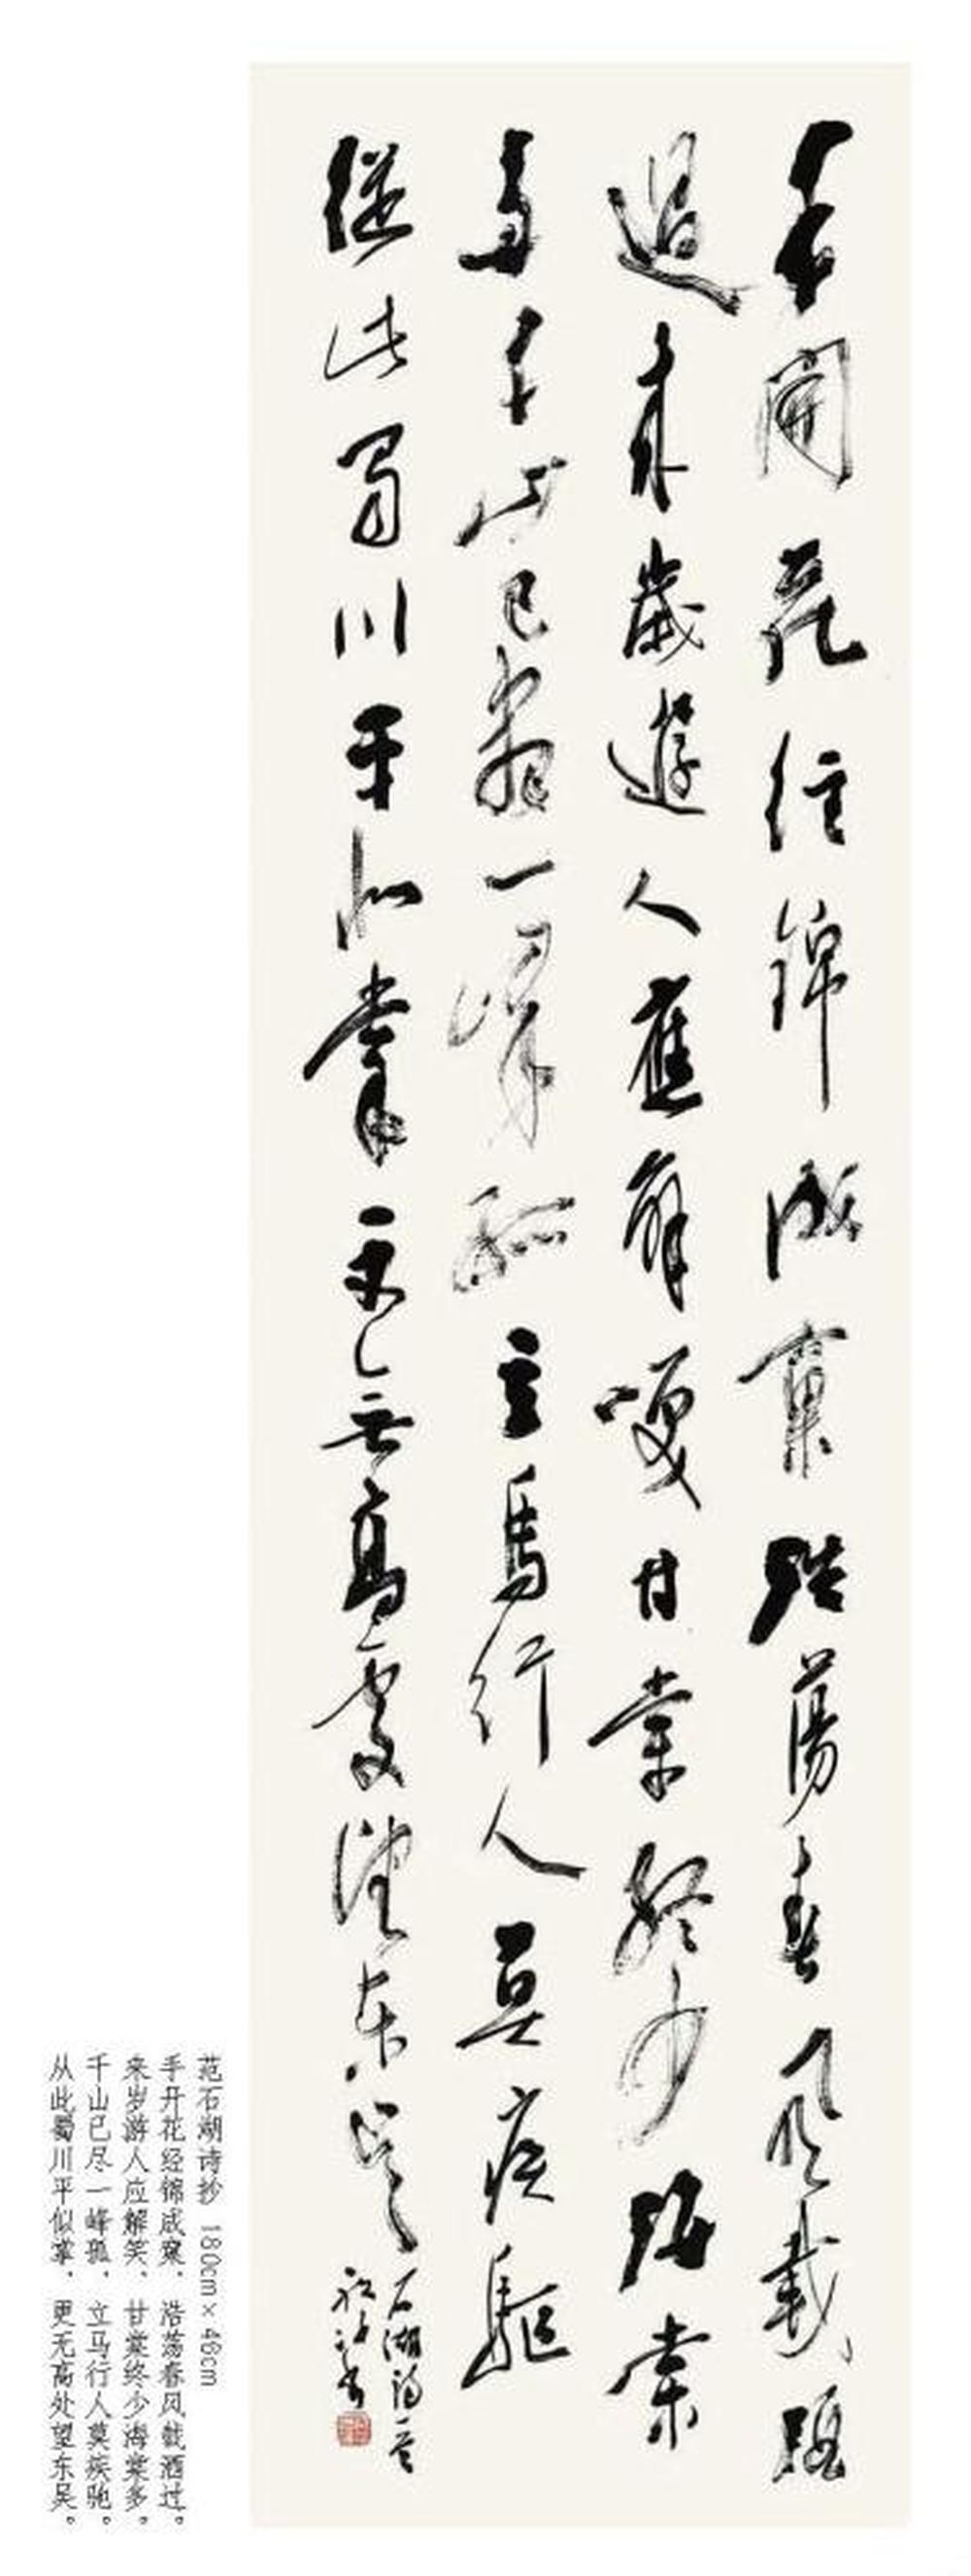 手開花徑錦成窠浩蕩春風載酒
過来歲遊人應解笑甘棠終少海棠
多千山已盡一峰孤立馬行人莫疾驅
從此蜀川平似掌更無高處望東吳
石湖詩
范石湖诗抄 180cm×46cm
手开花经锦成窠，浩荡春风载酒过。
来岁游人应解笑，甘棠终少海棠多。
千山已尽一峰孤，立马行人莫疾驰。
从此蜀川平似掌，更无高处望东吴。